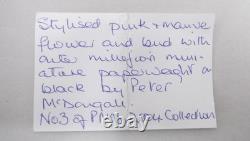 Stylised pink & mauve
flower and bud with
outer millefiori mini-
ature paperweight on
black by Peter
McDougall
No 3 of PMcD 2004 Collection
ebay